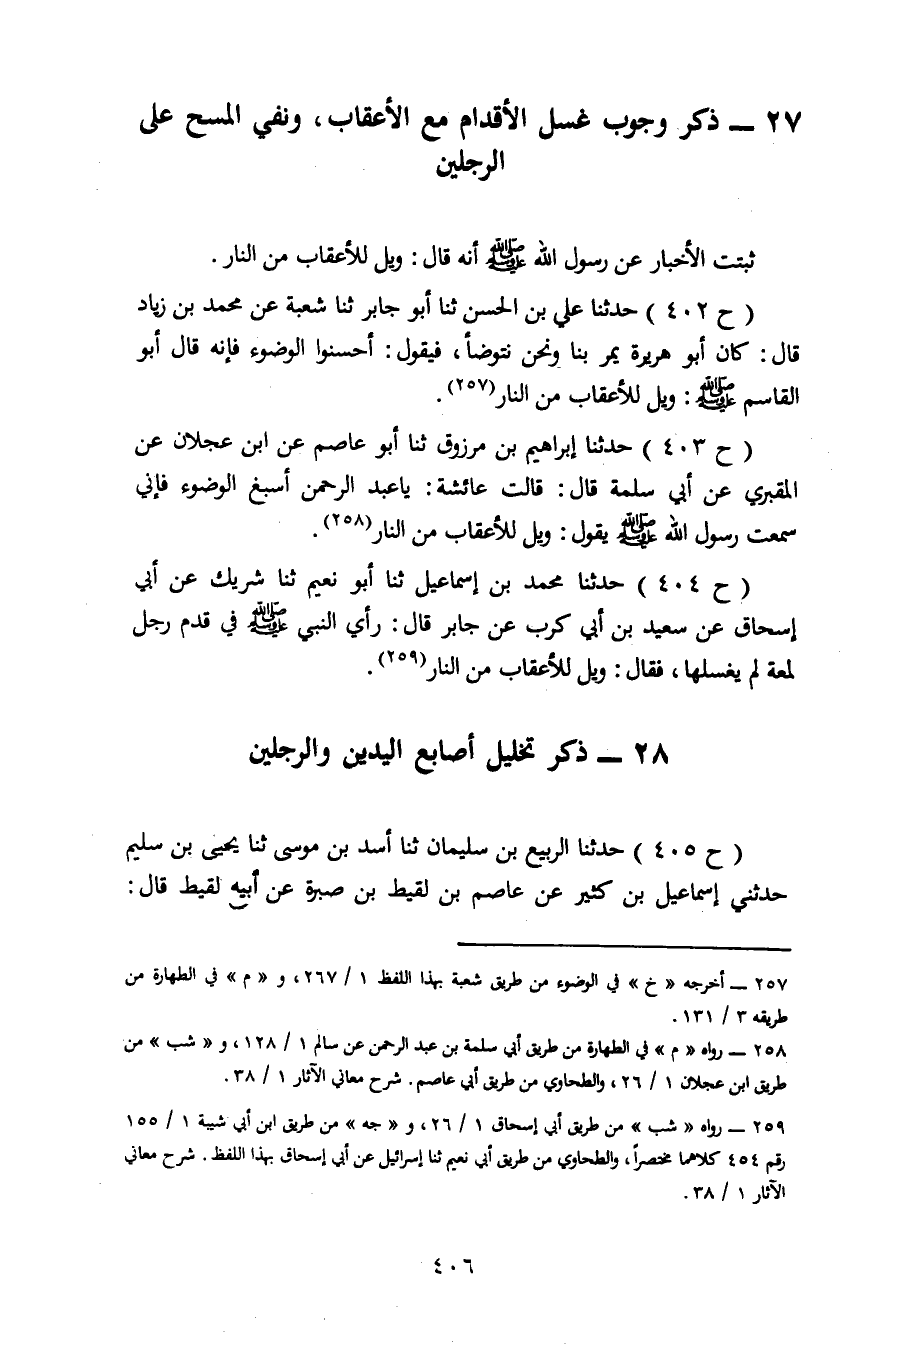 ٢٧ ــ ذكر وجوب غسل الأقدام مع الأعقاب، ونفي المسح على
الرجلين
ثبتت الأخبار عن رسول الله ﷺ أنه قال: ويل للأعقاب من النار.
( ح ٤٠٢ ) حدثنا علي بن الحسن ثنا أبو جابر ثنا شعبة عن محمد بن زياد
قال: كان أبو هريرة يمر بنا ونحن نتوضأ، فيقول: أحسنوا الوضوء فإنه قال أبو
القاسم ﷺ: ويل للأعقاب من النار(٢٥٧).
( ح ٤٠٣ ) حدثنا إبراهيم بن مرزوق ثنا أبو عاصم عن ابن عجلان عن
المقبري عن أبي سلمة قال: قالت عائشة: ياعبد الرحمن أسبغ الوضوء فإني
سمعت رسول الله ﷺ يقول: ويل للأعقاب من النار(٢٥٨).
( ح ٤٠٤ ) حدثنا محمد بن إسماعيل ثنا أبو نعيم ثنا شريك عن أبي
إسحاق عن سعيد بن أبي كرب عن جابر قال: رأي النبي ﷺ في قدم رجل
لمعة لم يغسلها، فقال: ويل للأعقاب من النار(٢٥٩).
٢٨ ــ ذكر تخليل أصابع اليدين والرجلين
( ح ٤٠٥ ) حدثنا الربيع بن سليمان ثنا أسد بن موسى ثنا يحيى بن سليم
حدثني إسماعيل بن كثير عن عاصم بن لقيط بن صبرة عن أبيه لقيط قال:
٢٥٧ ــ أخرجه « خ » في الوضوء من طريق شعبة بهذا اللفظ ١ / ٢٦٧، و « م » في الطهارة من
طريقه ٣ / ١٣١.
٢٥٨ ــ رواه « م » في الطهارة من طريق أبي سلمة بن عبد الرحمن عن سالم ١ / ١٢٨، و « شب » من
طريق ابن عجلان ١ / ٢٦، والطحاوي من طريق أبي عاصم. شرح معاني الآثار ١ / ٣٨.
٢٥٩ ــ رواه « شب » من طريق أبي إسحاق ١ / ٢٦، و « جه » من طريق ابن أبي شيبة ١ / ١٥٥
رقم ٤٥٤ كلاهما مختصراً، والطحاوي من طريق أبي نعيم ثنا إسرائيل عن أبي إسحاق بهذا اللفظ. شرح معاني
الآثار ١ / ٣٨.
٤٠٦